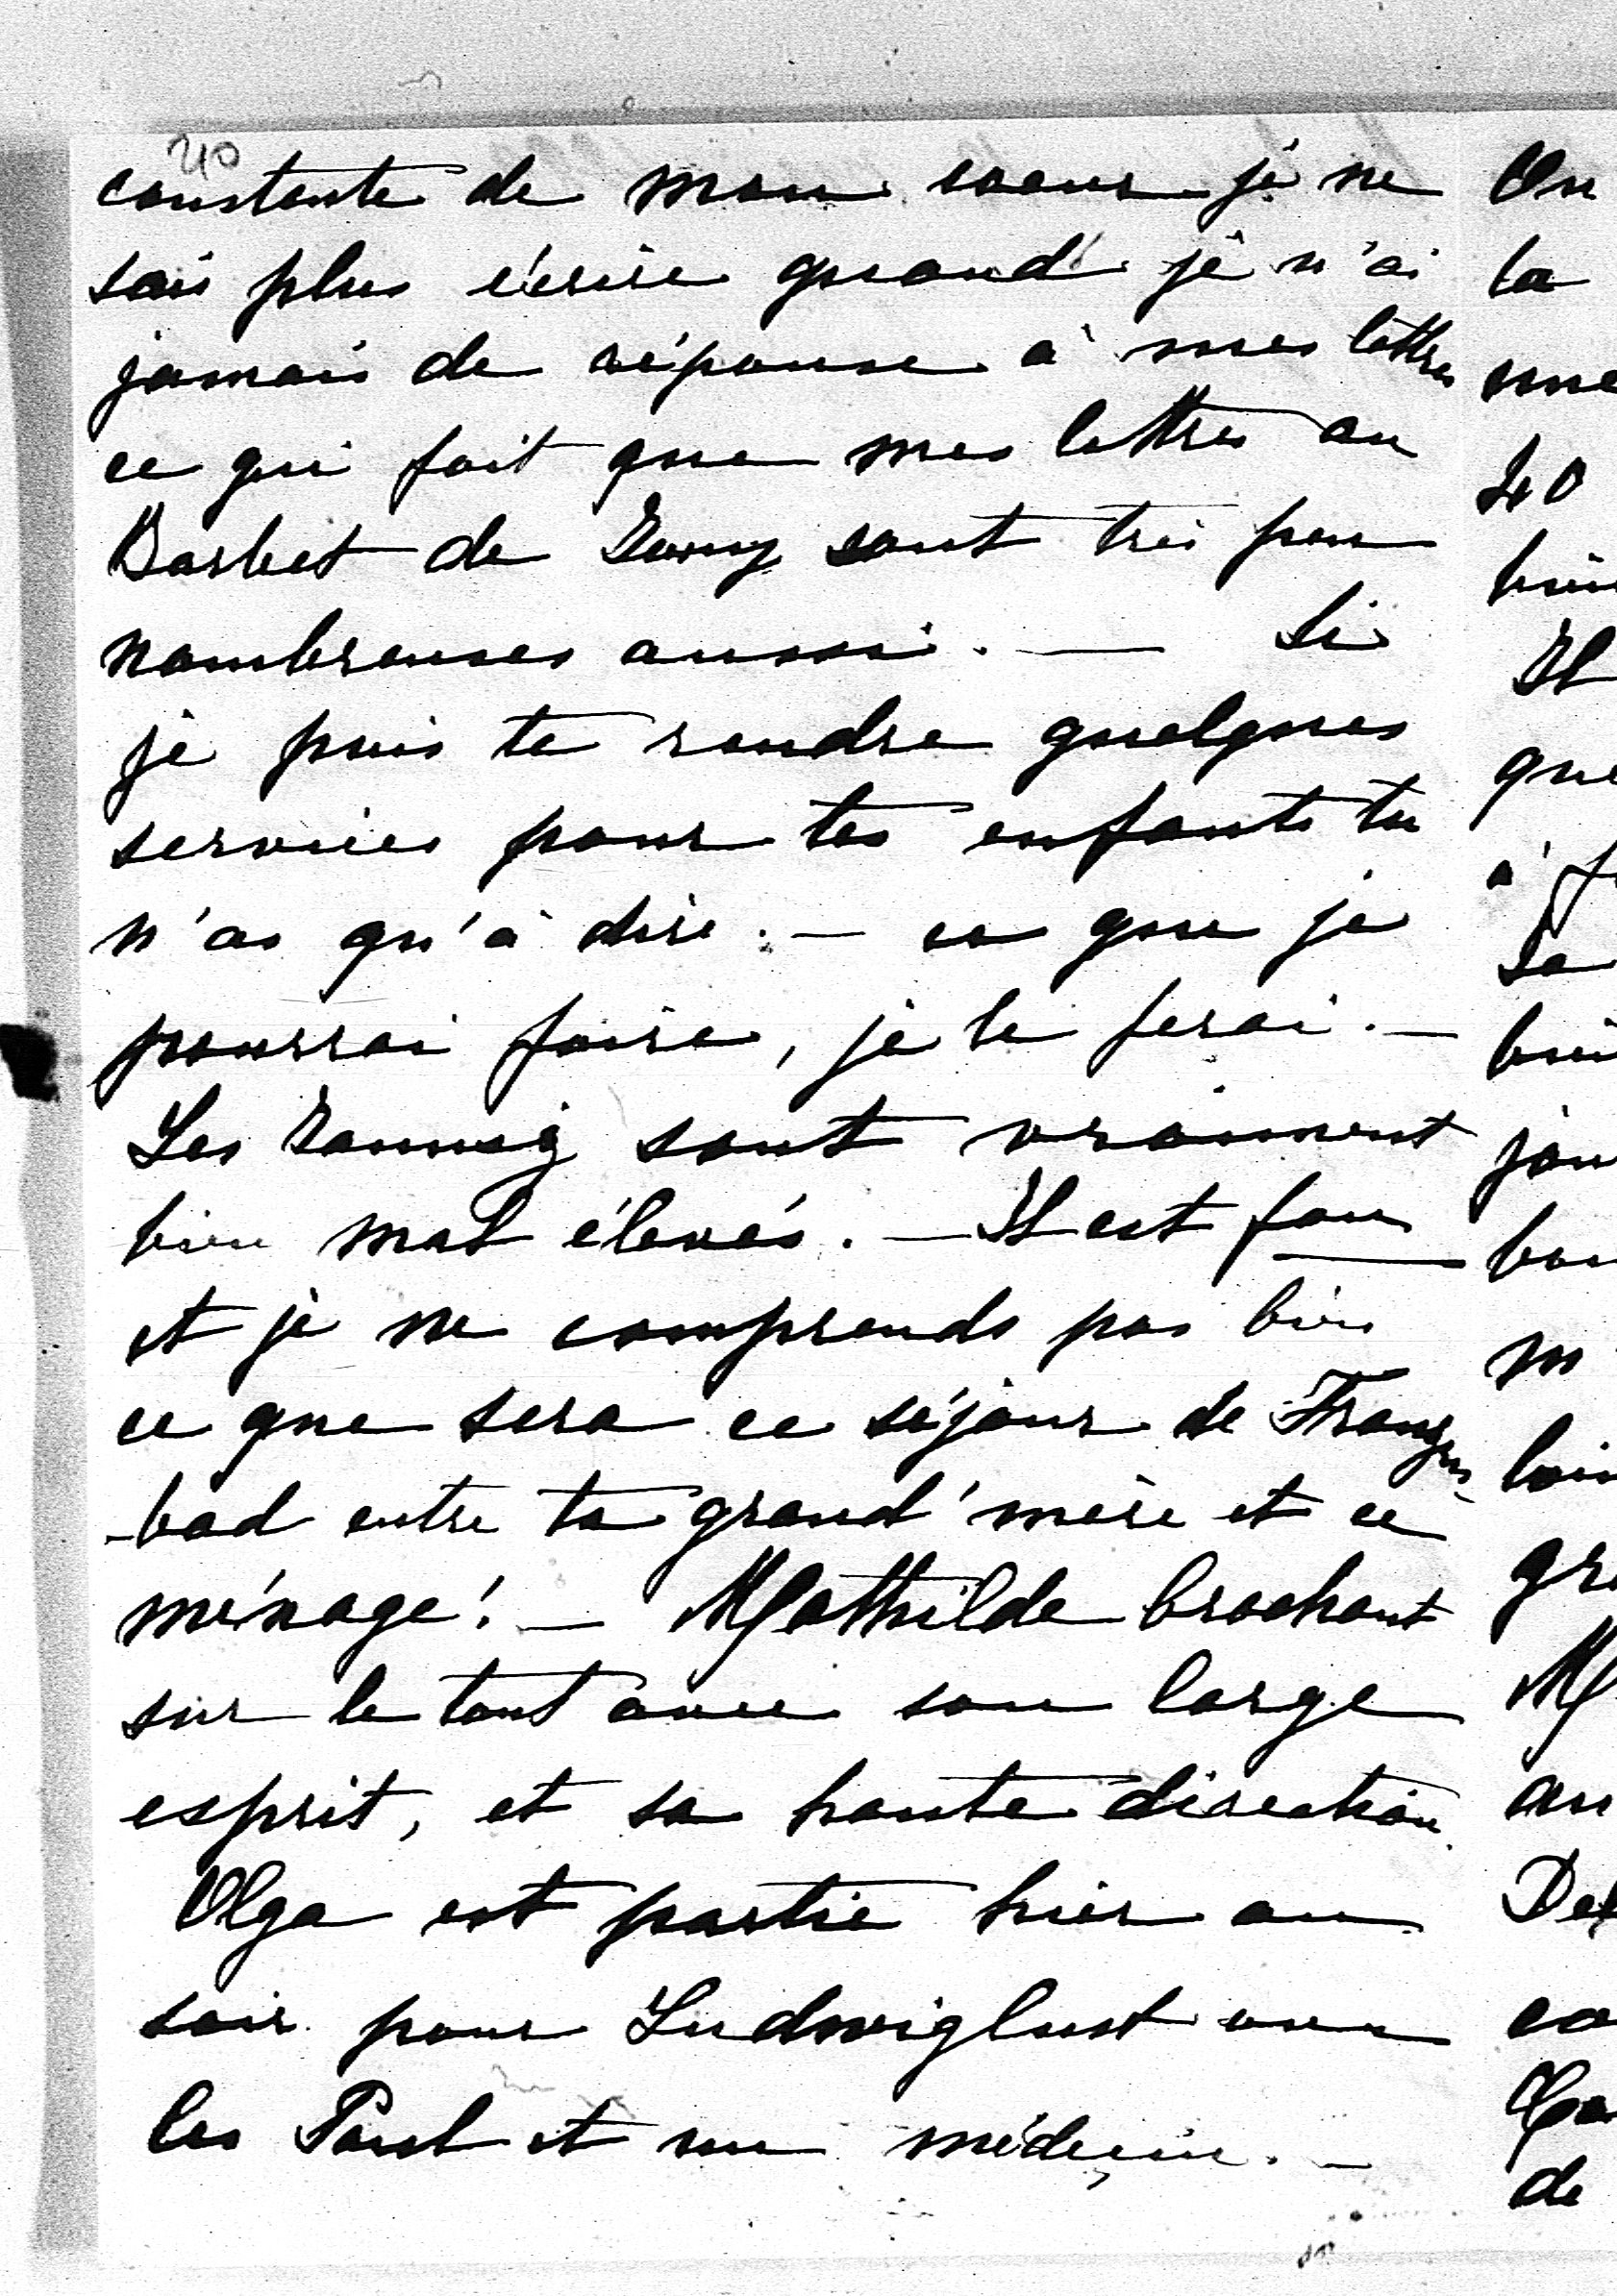 40
constante de mon coeur je ne
sais plus écrire quand je n'ai
jamais de réponse à mes lettres
ce qui fait que mes lettres au
Barbet de Jouy sont très peu
nombreuses aussi. — Si
je puis te rendre quelques
services pour tes enfants tu
n'as qu'à dire. — ce que je
pourrai faire, je le ferai. —
Les sont vraiment
bien mal élevés. — Il est fou
et je ne comprends pas bien
ce que sera ce séjour de Franzens
-bad entre ta grand'mère et ce
ménage! — Mathilde brochant
sur le tout avec son large
esprit, et sa haute direction.
Olga est partie hier au
soir pour Ludwiglust avec
les Paul et un médeçin. —
On
la
une
40
bien
Il
que
à
Sa
bien
m'
loin
gr
M
au
De
co
de